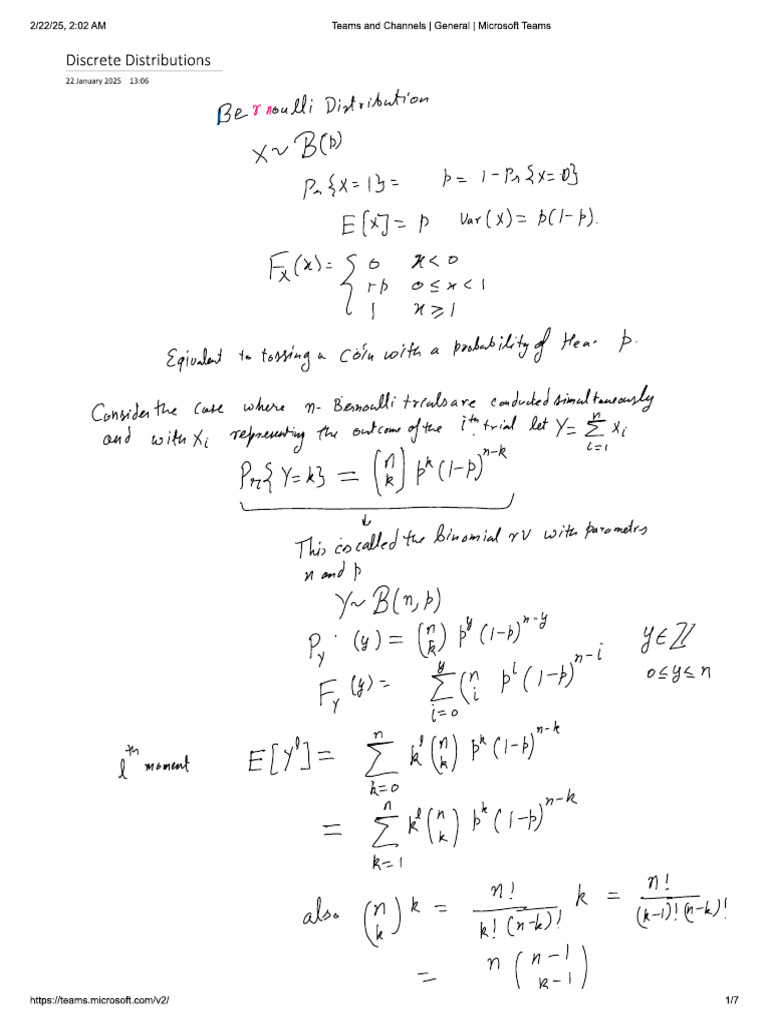 2/22/25, 2:02 AM Teams and Channels | General | Microsoft Teams
Discrete Distributions
22 January 2025 13:06
Bernoulli Distribution
X ~ B(p)
Pr{X=1} = p = 1 - Pr{X=0}
E[X] = p Var(X) = p(1-p).
F_X(x) = { 0 x<0
1-p 0≤x<1
1 x≥1
Equivalent to tossing a coin with a probability of Hea. p.
Consider the case where n- Bernoulli trials are conducted simultaneously
and with X_i representing the outcome of the i^th trial let Y = Σ_{i=1}^{n} X_i
Pr{Y=k} = (n k) p^k (1-p)^{n-k}
↓
This is called the Binomial rv with parameters
n and p
Y ~ B(n,p)
P_Y (y) = (n k) p^y (1-p)^{n-y} y∈ℤ
F_Y (y) = Σ_{i=0}^{y} (n i p^i (1-p)^{n-i} 0≤y≤n
l^th moment E[Y^l] = Σ_{k=0}^{n} k^l (n k) p^k (1-p)^{n-k}
= Σ_{k=1}^{n} k^l (n k) p^k (1-p)^{n-k}
also (n k) k = n! / k!(n-k)! k = n! / (k-1)!(n-k)!
= n (n-1 k-1)
https://teams.microsoft.com/v2/ 1/7